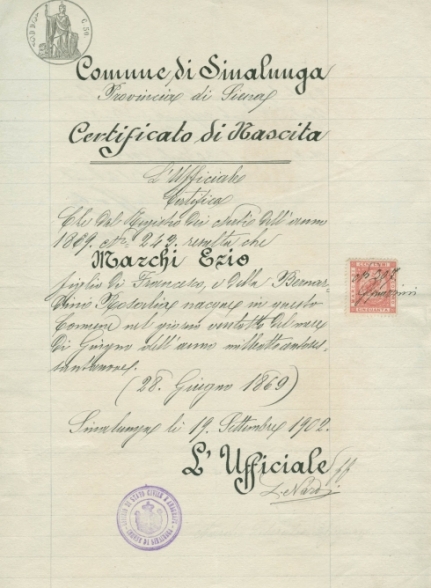 C. 50
Comune di Sinalunga
Provincia di Siena
Certificato di Nascita
L'Ufficiale
Certifica
Che dal Registro dei nati dell'anno
1869. N.º 242. resulta che
Marchi Ezio
figlio di Francesco, e della Bernar-
dino nacque in questo
Comune nel giorno ventotto del mese
di Giugno dell'anno milleottocentoses-
santanove.
(28. Giugno 1869)
Sinalunga li 19. Settembre 1902.
L'Ufficiale ff
CINQUANTA